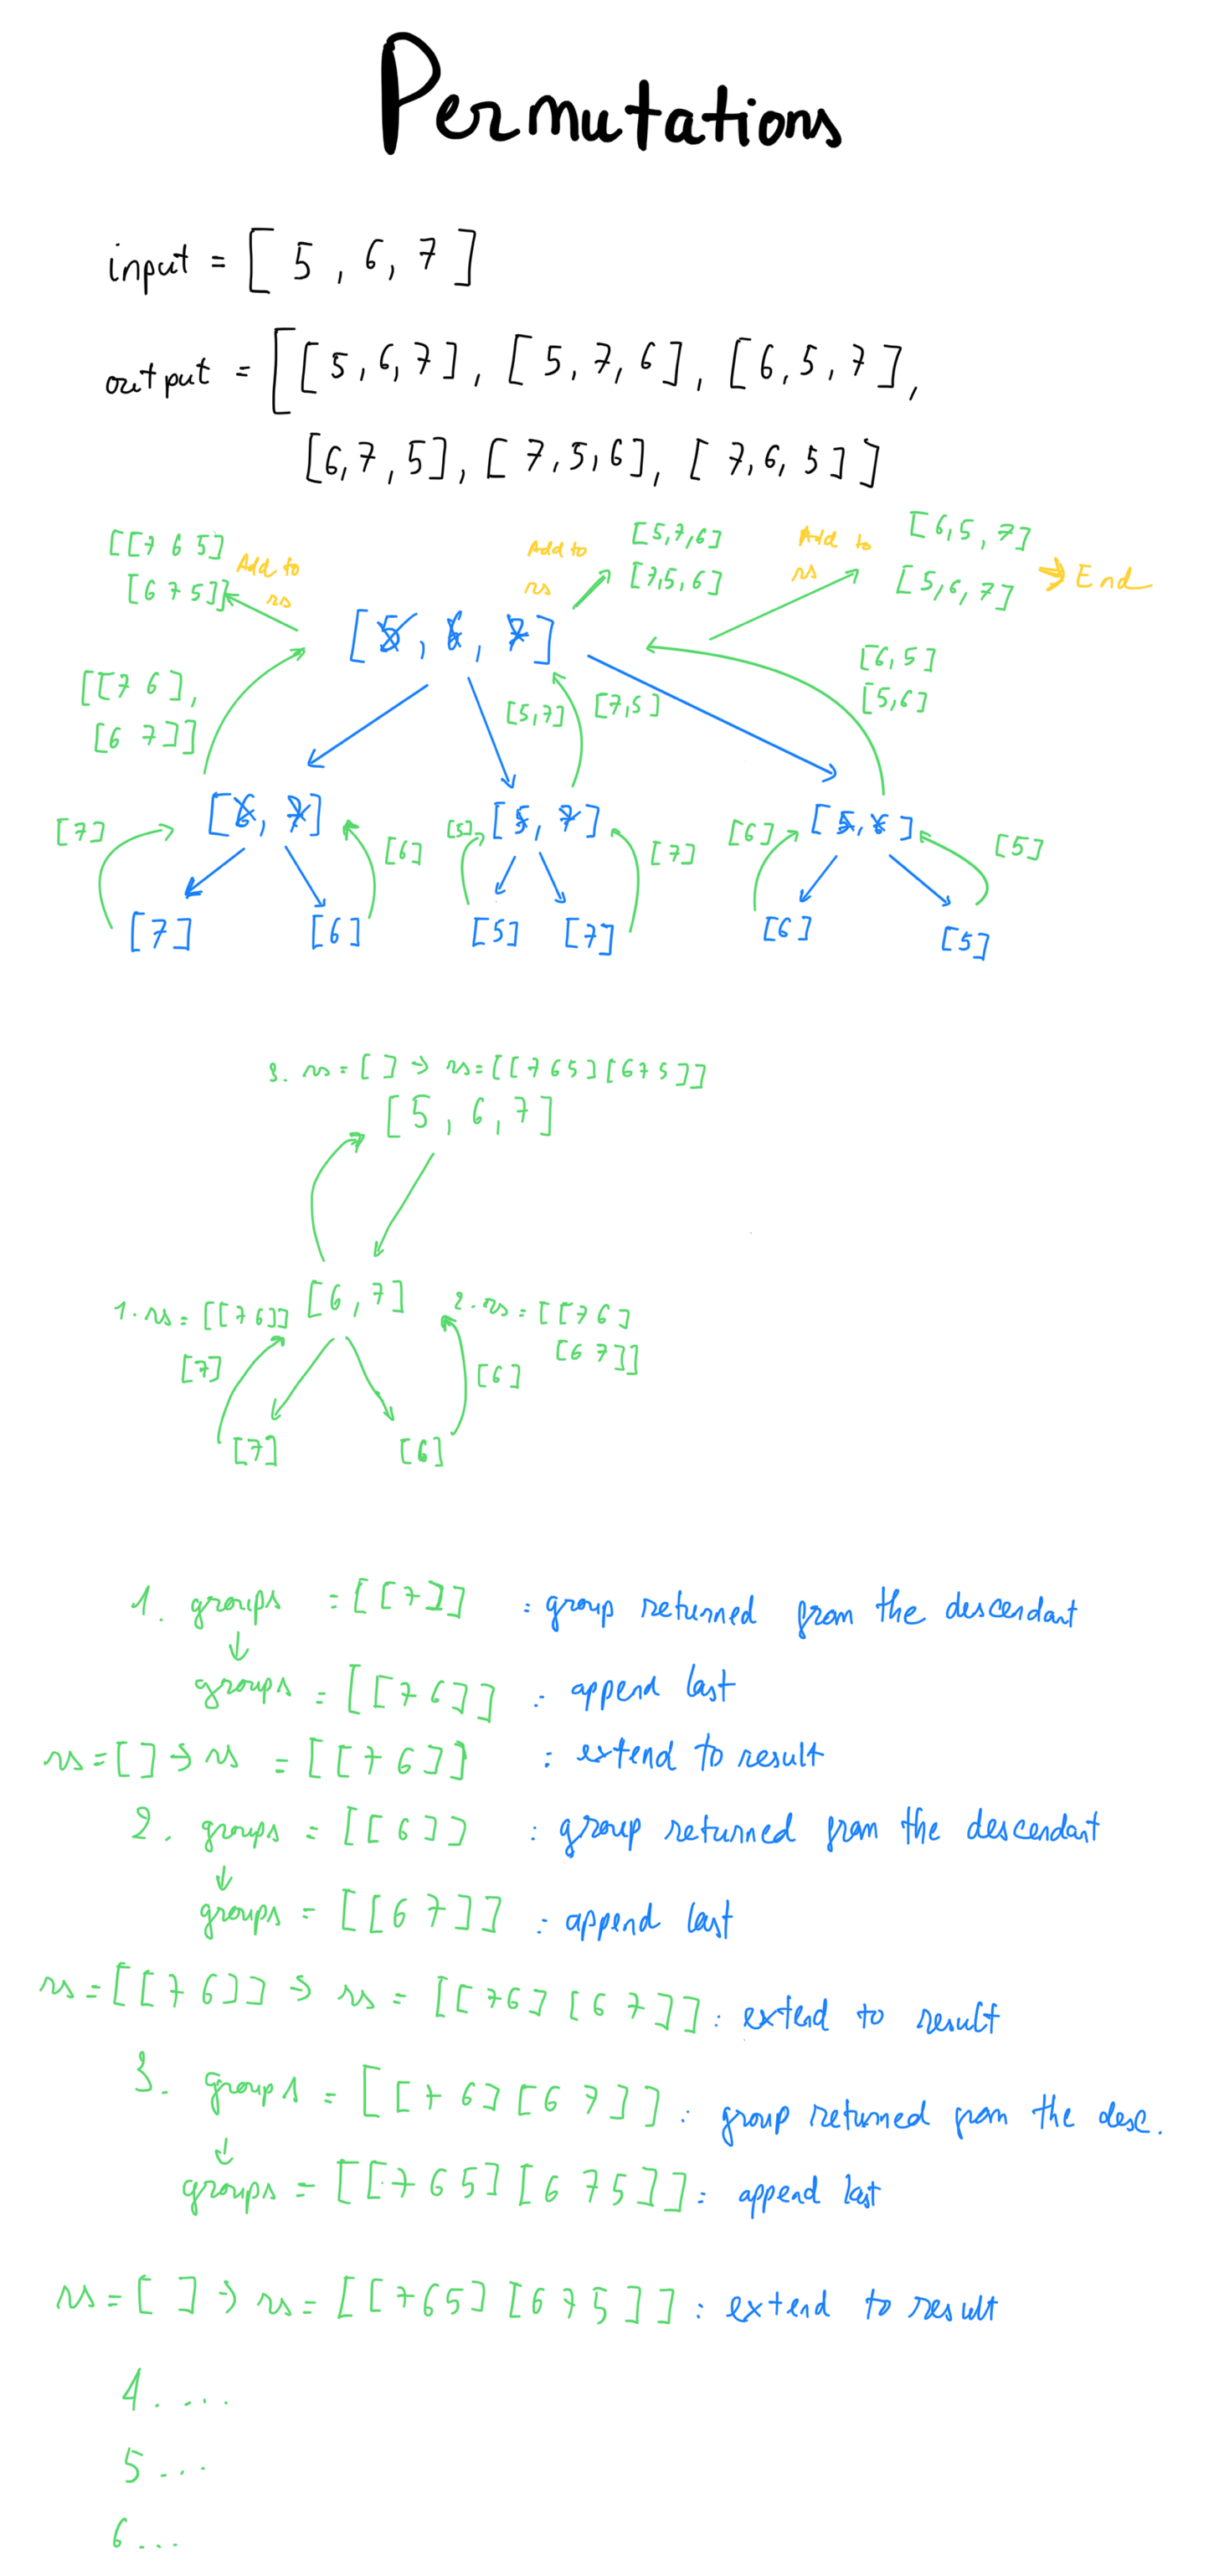 Permutations
input = [ 5 , 6, 7 ]
output = [[ 5, 6, 7 ], [ 5, 7, 6 ], [ 6, 5, 7 ],
[6, 7, 5], [ 7, 5, 6], [ 7, 6, 5 ] ]
[[7 6 5]
[6 7 5]]
Add to
rs
Add to
rs
[5,7,6]
[7,5,6]
Add to
rs
[6,5,7]
[5,6,7]
→ End
[5, 6, 7]
[[7 6],
[6 7]]
[5,7]
[7,5]
[6,5]
[5,6]
[7]
[6, 7]
[6]
[5]
[5, 7]
[7]
[6]
[5, 6]
[5]
[7]
[6]
[5]
[7]
[6]
[5]
3. rs = [ ] → rs = [[7 6 5] [6 7 5]]
[5, 6, 7]
1. rs = [[7 6]]
[6, 7]
2. rs = [[7 6]
[6 7]]
[7]
[6]
[7]
[6]
1. groups = [[7]] : group returned from the descendant
↓
groups = [[7 6]] : append last
rs = [ ] → rs = [[7 6]] : extend to result
2. groups = [[6]] : group returned from the descendant
↓
groups = [[6 7]] : append last
rs = [[7 6]] → rs = [[7 6] [6 7]] : extend to result
3. groups = [[7 6] [6 7]] : group returned from the desc.
↓
groups = [[7 6 5] [6 7 5]] : append last
rs = [ ] → rs = [[7 6 5] [6 7 5]] : extend to result
4. ....
5 ...
6 ...